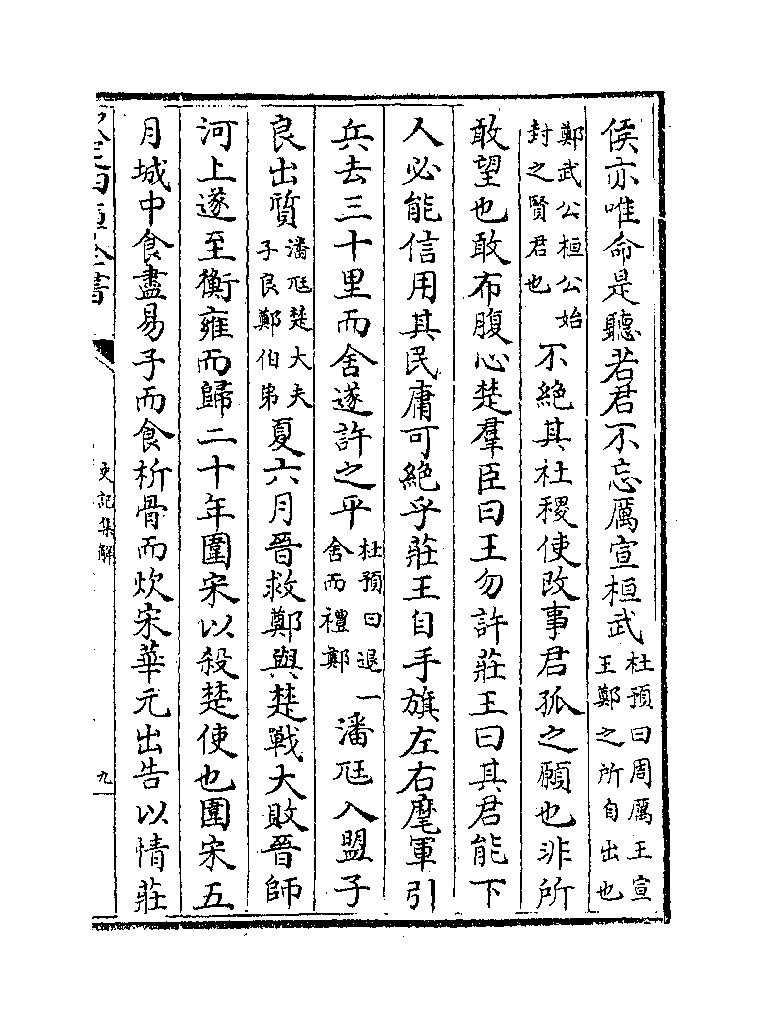 侯亦唯命是聽若君不忘厲宣桓武杜預曰周厲王宣王鄭之所自出也
鄭武公桓公始封之賢君也不絶其社稷使改事君孤之願也非所
敢望也敢布腹心楚羣臣曰王勿許莊王曰其君能下
人必能信用其民庸可絶乎莊王自手旗左右麾軍引
兵去三十里而舍遂許之平杜預曰退一舍而禮鄭潘尫入盟子
良出質潘尫楚大夫子良鄭伯弟夏六月晉救鄭與楚戰大敗晉師
河上遂至衡雍而歸二十年圍宋以殺楚使也圍宋五
月城中食盡易子而食析骨而炊宋華元出告以情莊
史記集解
九